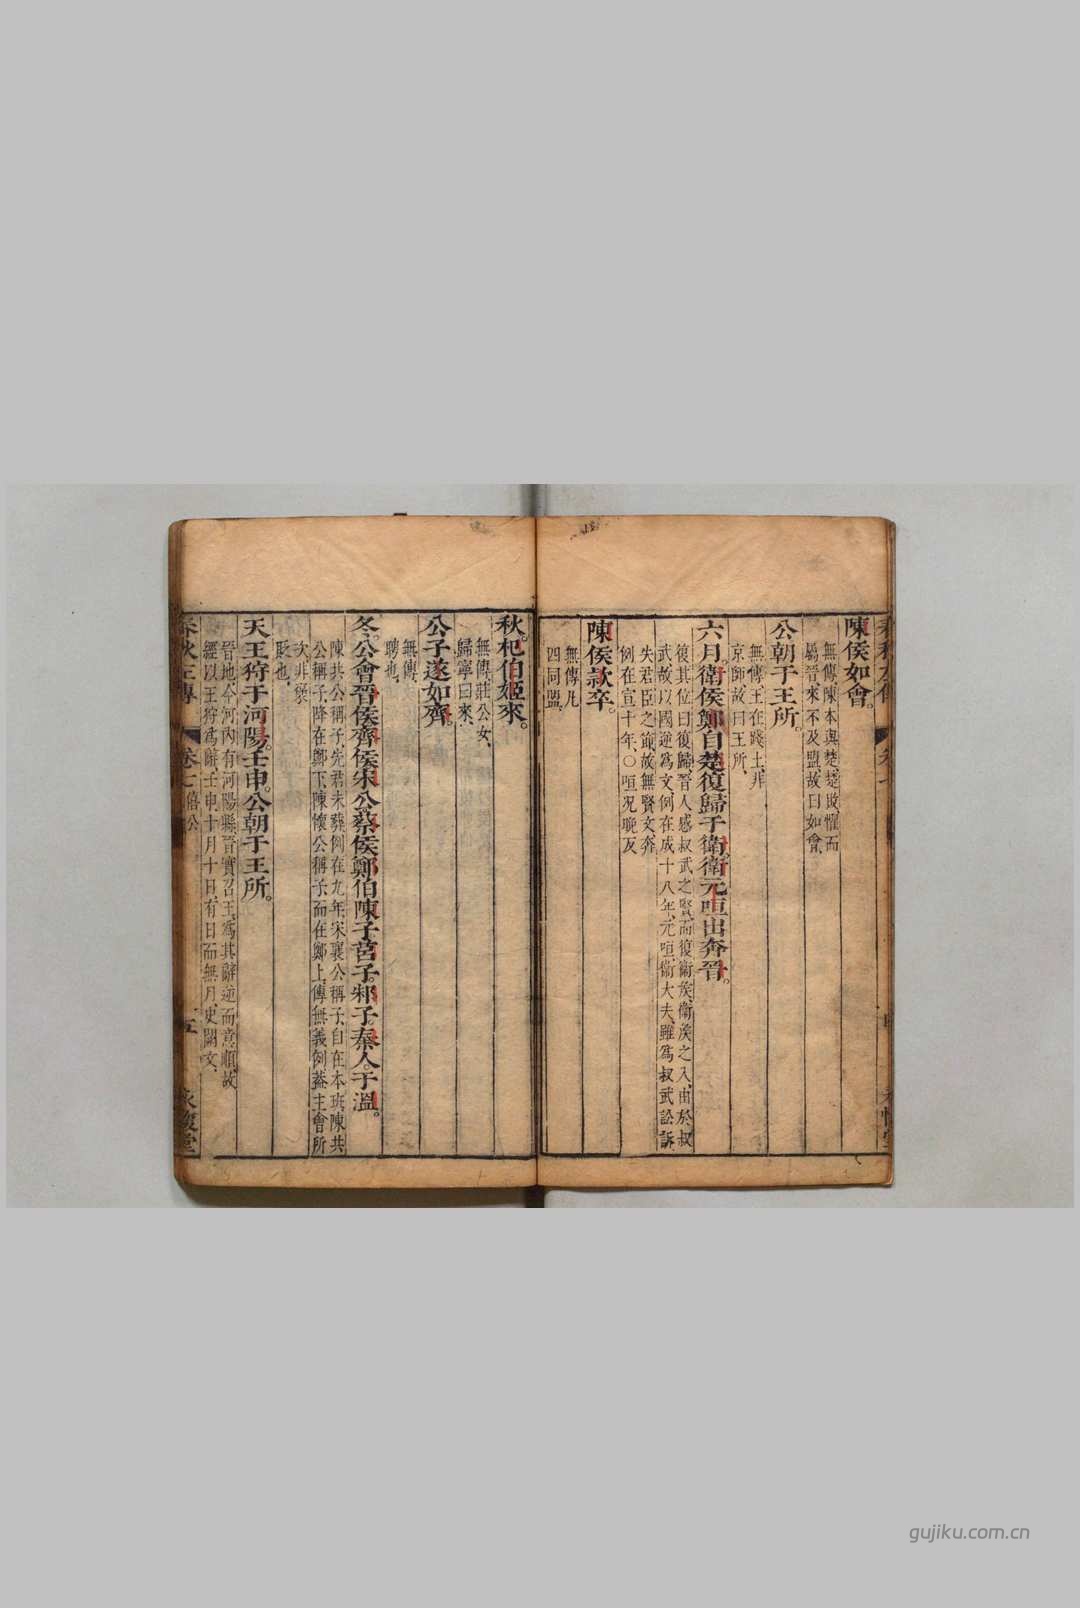 陳侯如會。
無傳陳本與楚楚敗懼而
屬晉來不及盟故曰如會、
公朝于王所。
無傳王在踐土非
京師故曰王所、
六月。衛侯鄭自楚復歸于衛。衛元咺出奔晉。
復其位曰復歸、晉人感叔武之賢、而復衛侯、衛侯之入、由於叔
武、故以國逆爲文、例在成十八年、元咺、衛大夫、雖爲叔武訟訴、
失君臣之節、故無賢文、奔
例在宣十年、〇咺、况晚反
陳侯款卒。
無傳凡
四同盟、
秋。杞伯姬來。
無傳、莊公女、
歸寧曰來、
公子遂如齊。
無傳、
聘也、
冬。公會晉侯齊侯宋公蔡侯鄭伯陳子莒子。邾子。秦人。于溫。
陳共公稱子、先君未葬、例在九年、宋襄公稱子、自在本班、陳共
公稱子、降在鄭下、陳懷公稱子、而在鄭上、傳無義例、蓋主會所
次、非褒
貶也、
天王狩于河陽。壬申。公朝于王所。
晉地、今河內有河陽縣、晉實召王、爲其辭逆而意順、故
經以王狩爲辭、壬申、十月十日、有日而無月、史闕文、
春秋左傳 卷七 僖公 五 永懷堂